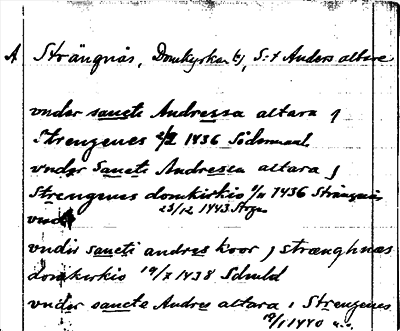 A Strängnäs, Domkyrkan, S:t Anders altare
vnder sancte Andressa altara j
Strengenes 2/2 1436 Södermanl
vnder Sancte Andresea altara j
Strengenes domkirkio 1436 Strängnäs
23/12 1443 Stegn
vndir sancti andres koor j strænghnæs
domkirkio 19/8 1438 Schuld
vnder sancte Andres altara i Strengenes
19/1 1440